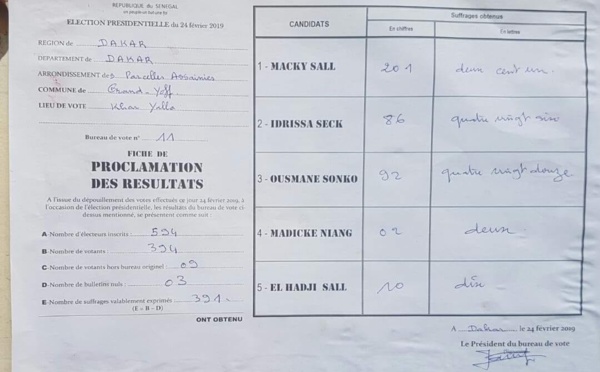 REPUBLIQUE DU SENEGAL
ELECTION PRESIDENTIELLE du 24 février 2019
REGION de DAKAR
DEPARTEMENT de DAKAR
ARRONDISSEMENT de Parcelles Assainies
COMMUNE de Grand-Yoff
LIEU DE VOTE Khar Yalla
Bureau de vote n° 11
FICHE DE
PROCLAMATION
DES RESULTATS
A l'issue du dépouillement des votes effectués ce jour 24 février 2019, à
l'occasion de l'élection présidentielle, les résultats du bureau de vote ci-
dessus mentionné, se présentent comme suit :
A -Nombre d'électeurs inscrits : 594
B -Nombre de votants 394
C -Nombre de votants hors bureau originel : 09
D -Nombre de bulletins nuls : 03
E -Nombre de suffrages valablement exprimés 391
(E = B - D)
ONT OBTENU
CANDIDATS
Suffrages obtenus
En chiffres
En lettres
1 - MACKY SALL 201 deux cent un
2 - IDRISSA SECK 86 quatre vingt six
3 - OUSMANE SONKO 92 quatre vingt douze
4 - MADICKE NIANG 02 deux
5 - EL HADJI SALL 10 dix
A Dakar le 24 février 2019
Le Président du bureau de vote